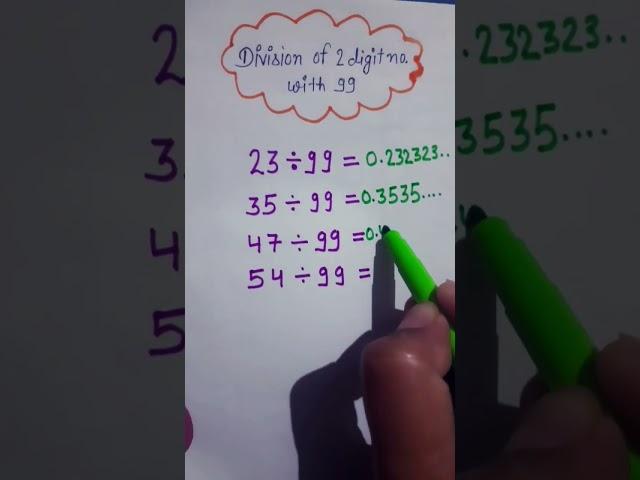 Division of 2 digit no.
with 99
23 ÷ 99 = 0.232323..
35 ÷ 99 = 0.3535....
47 ÷ 99 = 0.4
54 ÷ 99 =